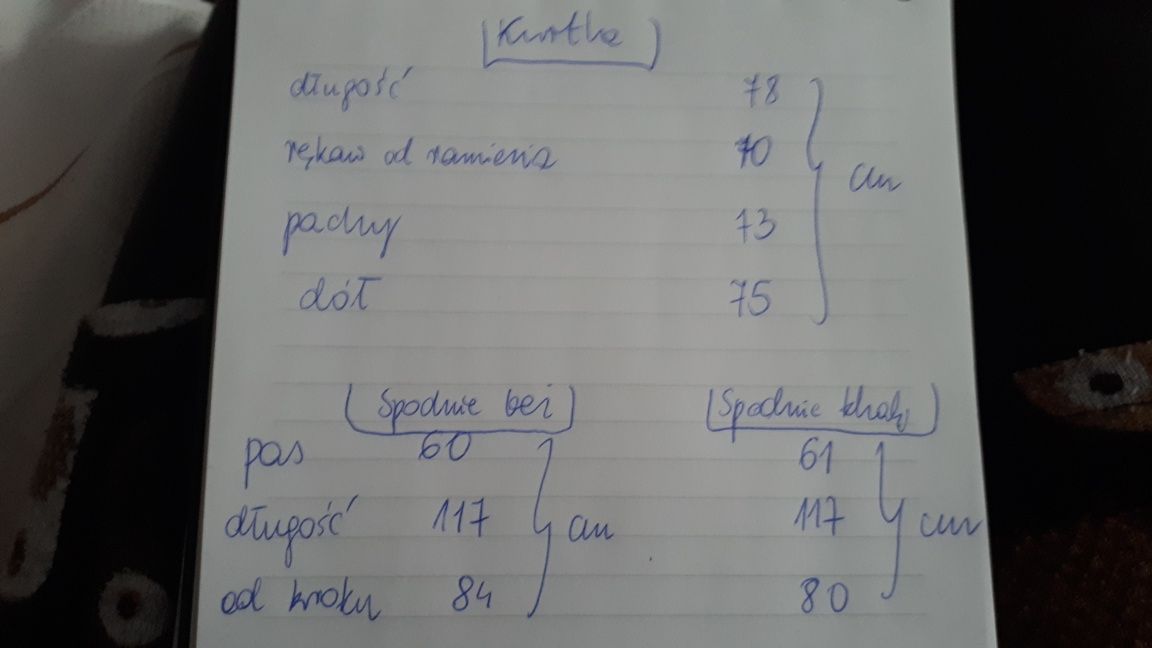 Kurtka
długość 78
rękaw od ramienia 70 cm
pachy 73
dół 75
Spodnie beż Spodnie khaki
pas 60 61
długość 117 cm 117 cm
od kroku 84 80